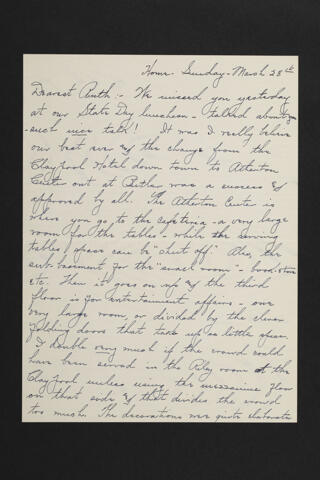 Home - Sunday - March 28th
Dearest Ruth :- We missed you yesterday
at our State Day luncheon - talked about you
- such nice talk! It was I really believe
our best ever & the change from the
Claypool Hotel down town to Atherton
Center out at Butler was a success &
approved by all. The Atherton Center is
where you go to the cafeteria - a very large
room for the tables - while the serving
tables space can be "shut off". Also, the
sub-basement for the "snack room" - bookstore
etc. Then it goes on up & the third
floor is for entertainment affairs - one
very large room, or divided by the clever
folding doors that take up so little space.
I doubt very much if the crowd could
have been served in the Riley room at the
Claypool unless using the mezzanine floor
on that side & that divides the crowd
too much. The decorations were quite elaborate